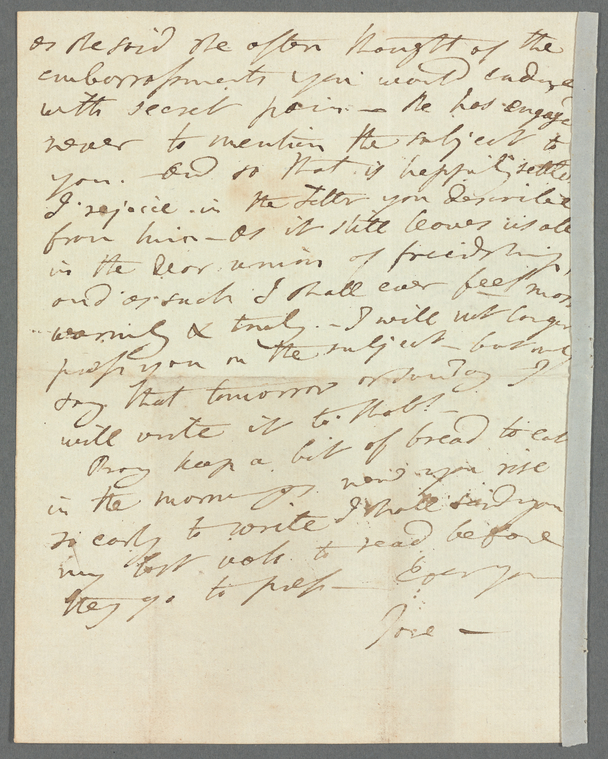 as He said He often thought of the
embarrassments you would endure
with secret pain — He has engaged
never to mention the subject to
you. And so that is happily settled
I rejoice in the letter you described
from him — as it still leaves us all
in the dear union of friendship,
and as such I shall ever feel most
warmly & truly. — I will not longer
press you on the subject — but only
say that tomorrow or Sunday I
will write it to
Pray keep a bit of bread to eat
in the mornings now you rise
so early to write I shall send you
my last vols to read before
they go to press — Ever yr